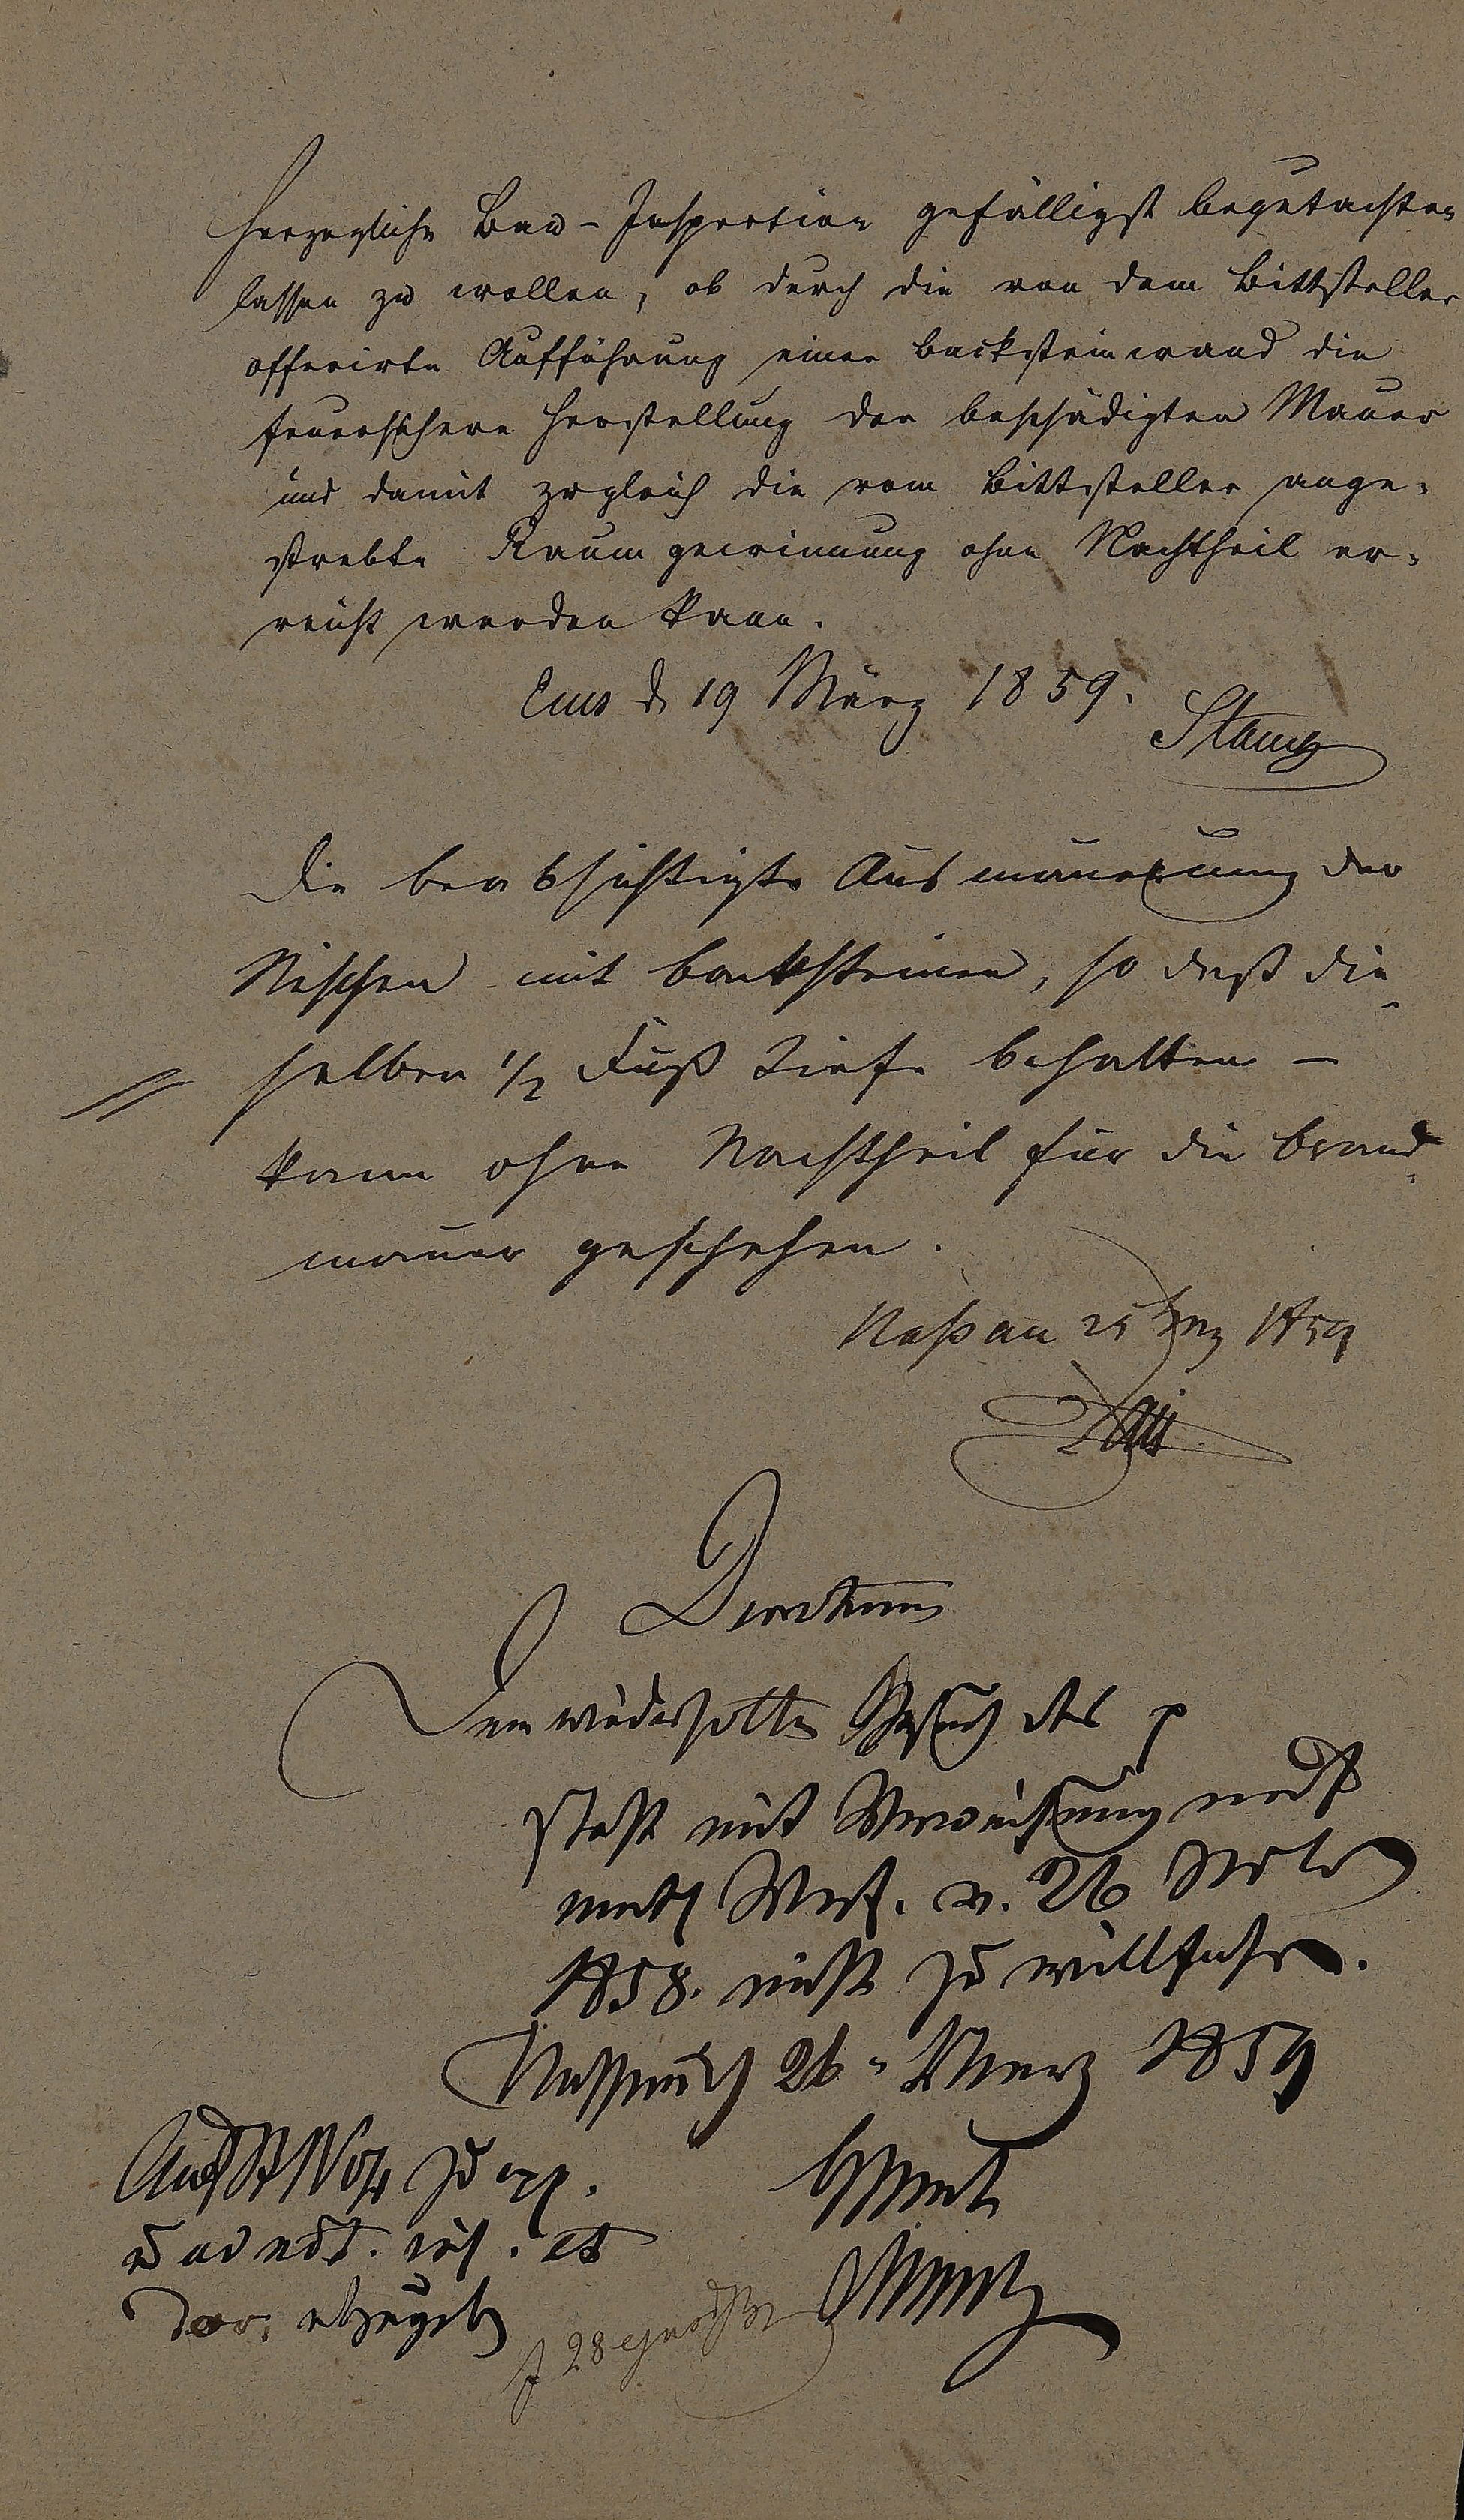 Herzogliche Bau-Inspection gefälligst begutachten
lassen zu wollen, ob durch die von dem Bittsteller
offerirte Aufführung einer Backsteinwand die
feuersichere Herstellung der beschädigten Mauer
und damit zugleich die vom Bittsteller ange-
strebte Raumgewinnung ohne Nachtheil er-
reicht werden kann.
Ems d 19 März 1859.
Die beabsichtigte Ausmauerung der
Nischen mit Backsteinen, so daß die-
selben 1/2 Fuß Tiefe behalten –
kann ohne Nachtheil für die Brand-
mauer geschehen.
Naßau 25 März 1859
Decretum
Dem wiederholten Gesuch des p
steht mit Verweisung
Verf. v. 26
1858. nicht zu willfahren.
Nassau 26 März 1859
zu